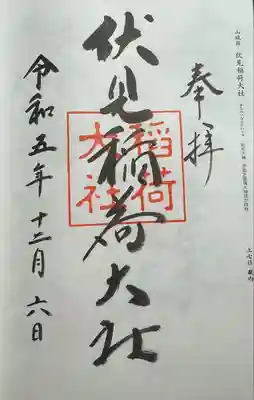 山城国 伏見稲荷大社
奉拝
伏見稲荷大社
稲荷
大社
令和五年十二月六日